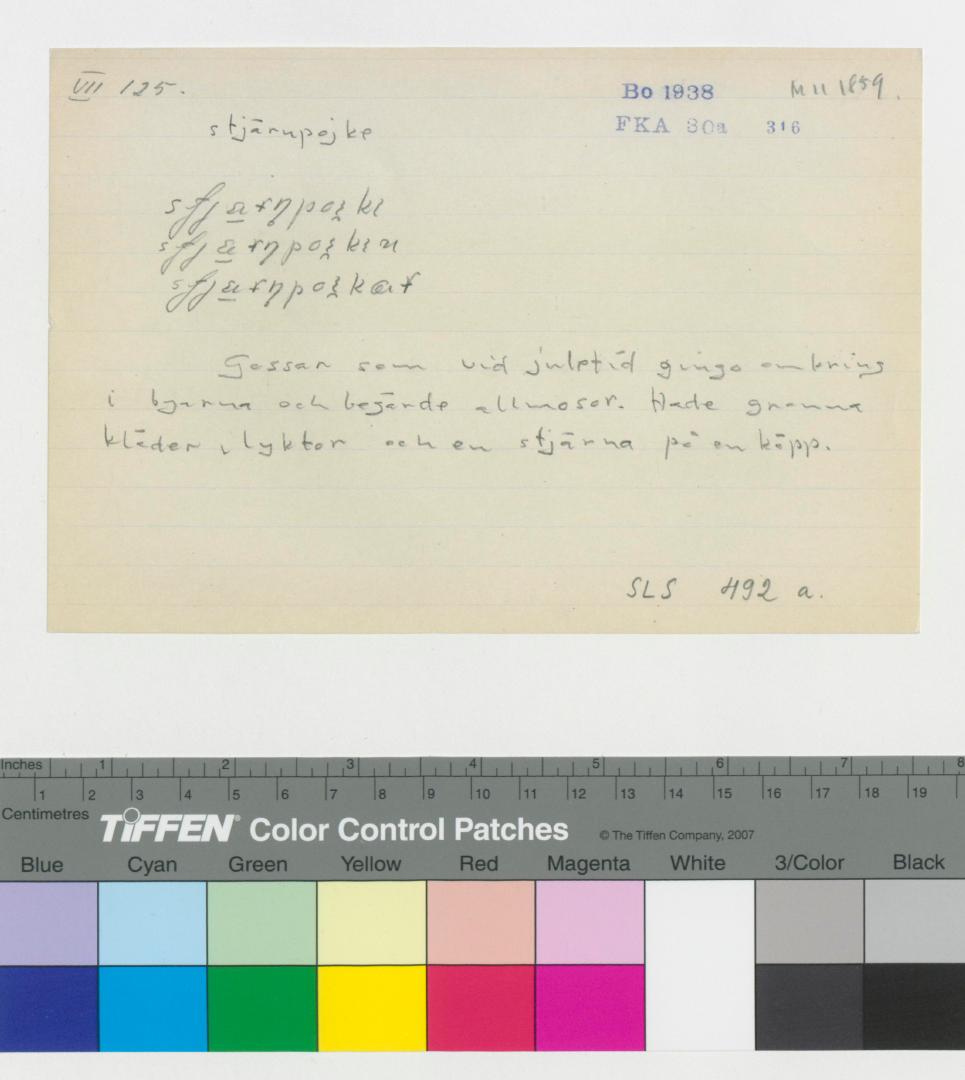 VII 125.
Bo 1938
M II 1859.
FKA 30a 316
stjärnpojke
Gossar som vid juletid gingo omkring
i byarna och begärde allmosor. Hade granna
kläder, lyktor och en stjärna på en käpp.
SLS 492 a.
Inches 1 2 3 4 5 6 7 8
1 2 3 4 5 6 7 8 9 10 11 12 13 14 15 16 17 18 19
Centimetres
TIFFEN® Color Control Patches © The Tiffen Company, 2007
Blue Cyan Green Yellow Red Magenta White 3/Color Black